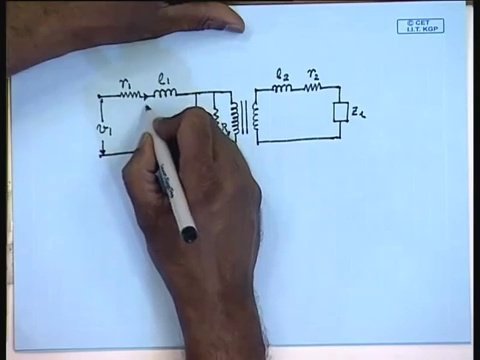 © CET
I.I.T. KGP
r₁ l₁ l₂ r₂
v₁ R Z_L